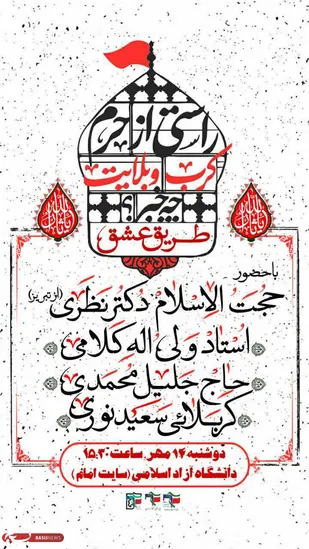 راستی از حرم
کرب و بلایت
چه خبر؟
طریق عشق
یا ثارالله
یا ثارالله
با حضور
حجت الاسلام دکتر نظری (از تبریز)
استاد ولی اله کلامی
حاج جلیل محمدی
کربلائی سعید نوری
دوشنبه ۱۴ مهر ساعت ۱۵:۳۰
دانشگاه آزاد اسلامی (سایت امام)
BASIJNEWS